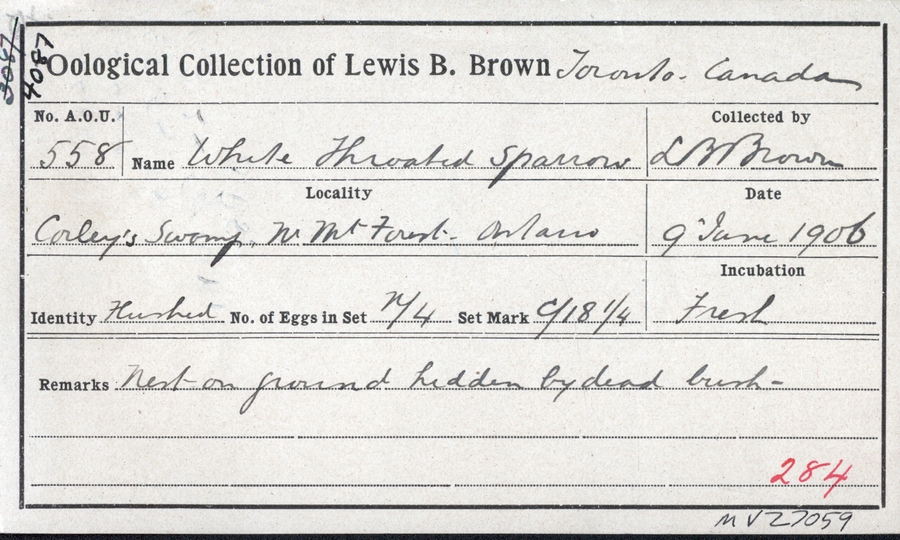 3087
4087
Oological Collection of Lewis B. Brown Toronto. Canada
No. A.O.U. Collected by
558 Name White Throated Sparrow L B Brown
Locality Date
Corley's Swamp, Nr Mt Forest. Ontario 9 June 1906
Incubation
Identity Flushed No. of Eggs in Set n/4 Set Mark 1/4 Fresh
Remarks Nest on ground hidden by dead brush-
284
MVZ 7059